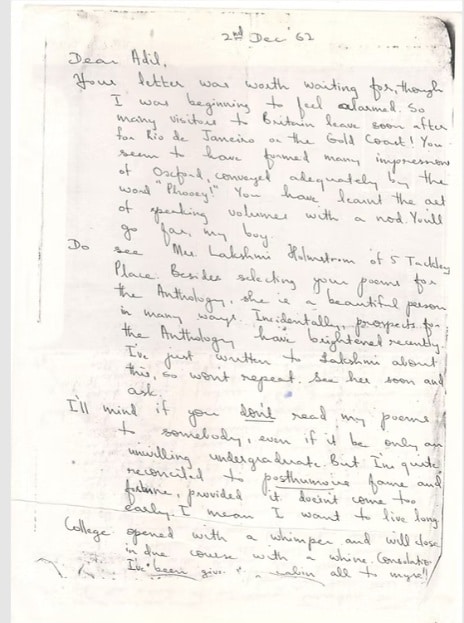 2nd Dec '62
Dear Adil,
Your letter was worth waiting for, though
I was beginning to feel alarmed. So
many visitors to Britain leave soon after
for Rio de Janeiro or the Gold Coast! You
seem to have formed many impressions
of Oxford, conveyed adequately by the
word "Phooey!" You have learnt the art
of speaking volumes with a nod. You'll
go far, my boy.
Do see Mrs. Lakshmi Holmstrom of 5 Tackley
Place. Besides selecting your poems for
the Anthology, she is a beautiful person
in many ways. Incidentally, prospects for
the Anthology have brightened recently.
I've just written to Lakshmi about
this, so won't repeat. See her soon and
ask.
I'll mind if you don't read my poems
to somebody, even if it be only an
unwilling undergraduate. But I'm quite
reconciled to posthumous fame and
fortune, provided it doesn't come too
early. I mean I want to live long
College opened with a whimper and will close
in due course with a whine. Consolation
I've been given all to myself!